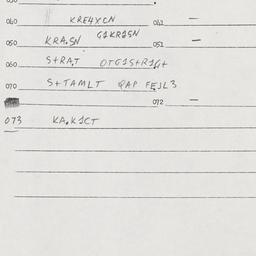 060 KRE4XCN 061 —
050 KRA.SN G1KR1SN 051 —
060 S+RA.T OTG1S+R1G+
070 S+TAMLT QAP FEJL3
072 —
073 KA.K1CT